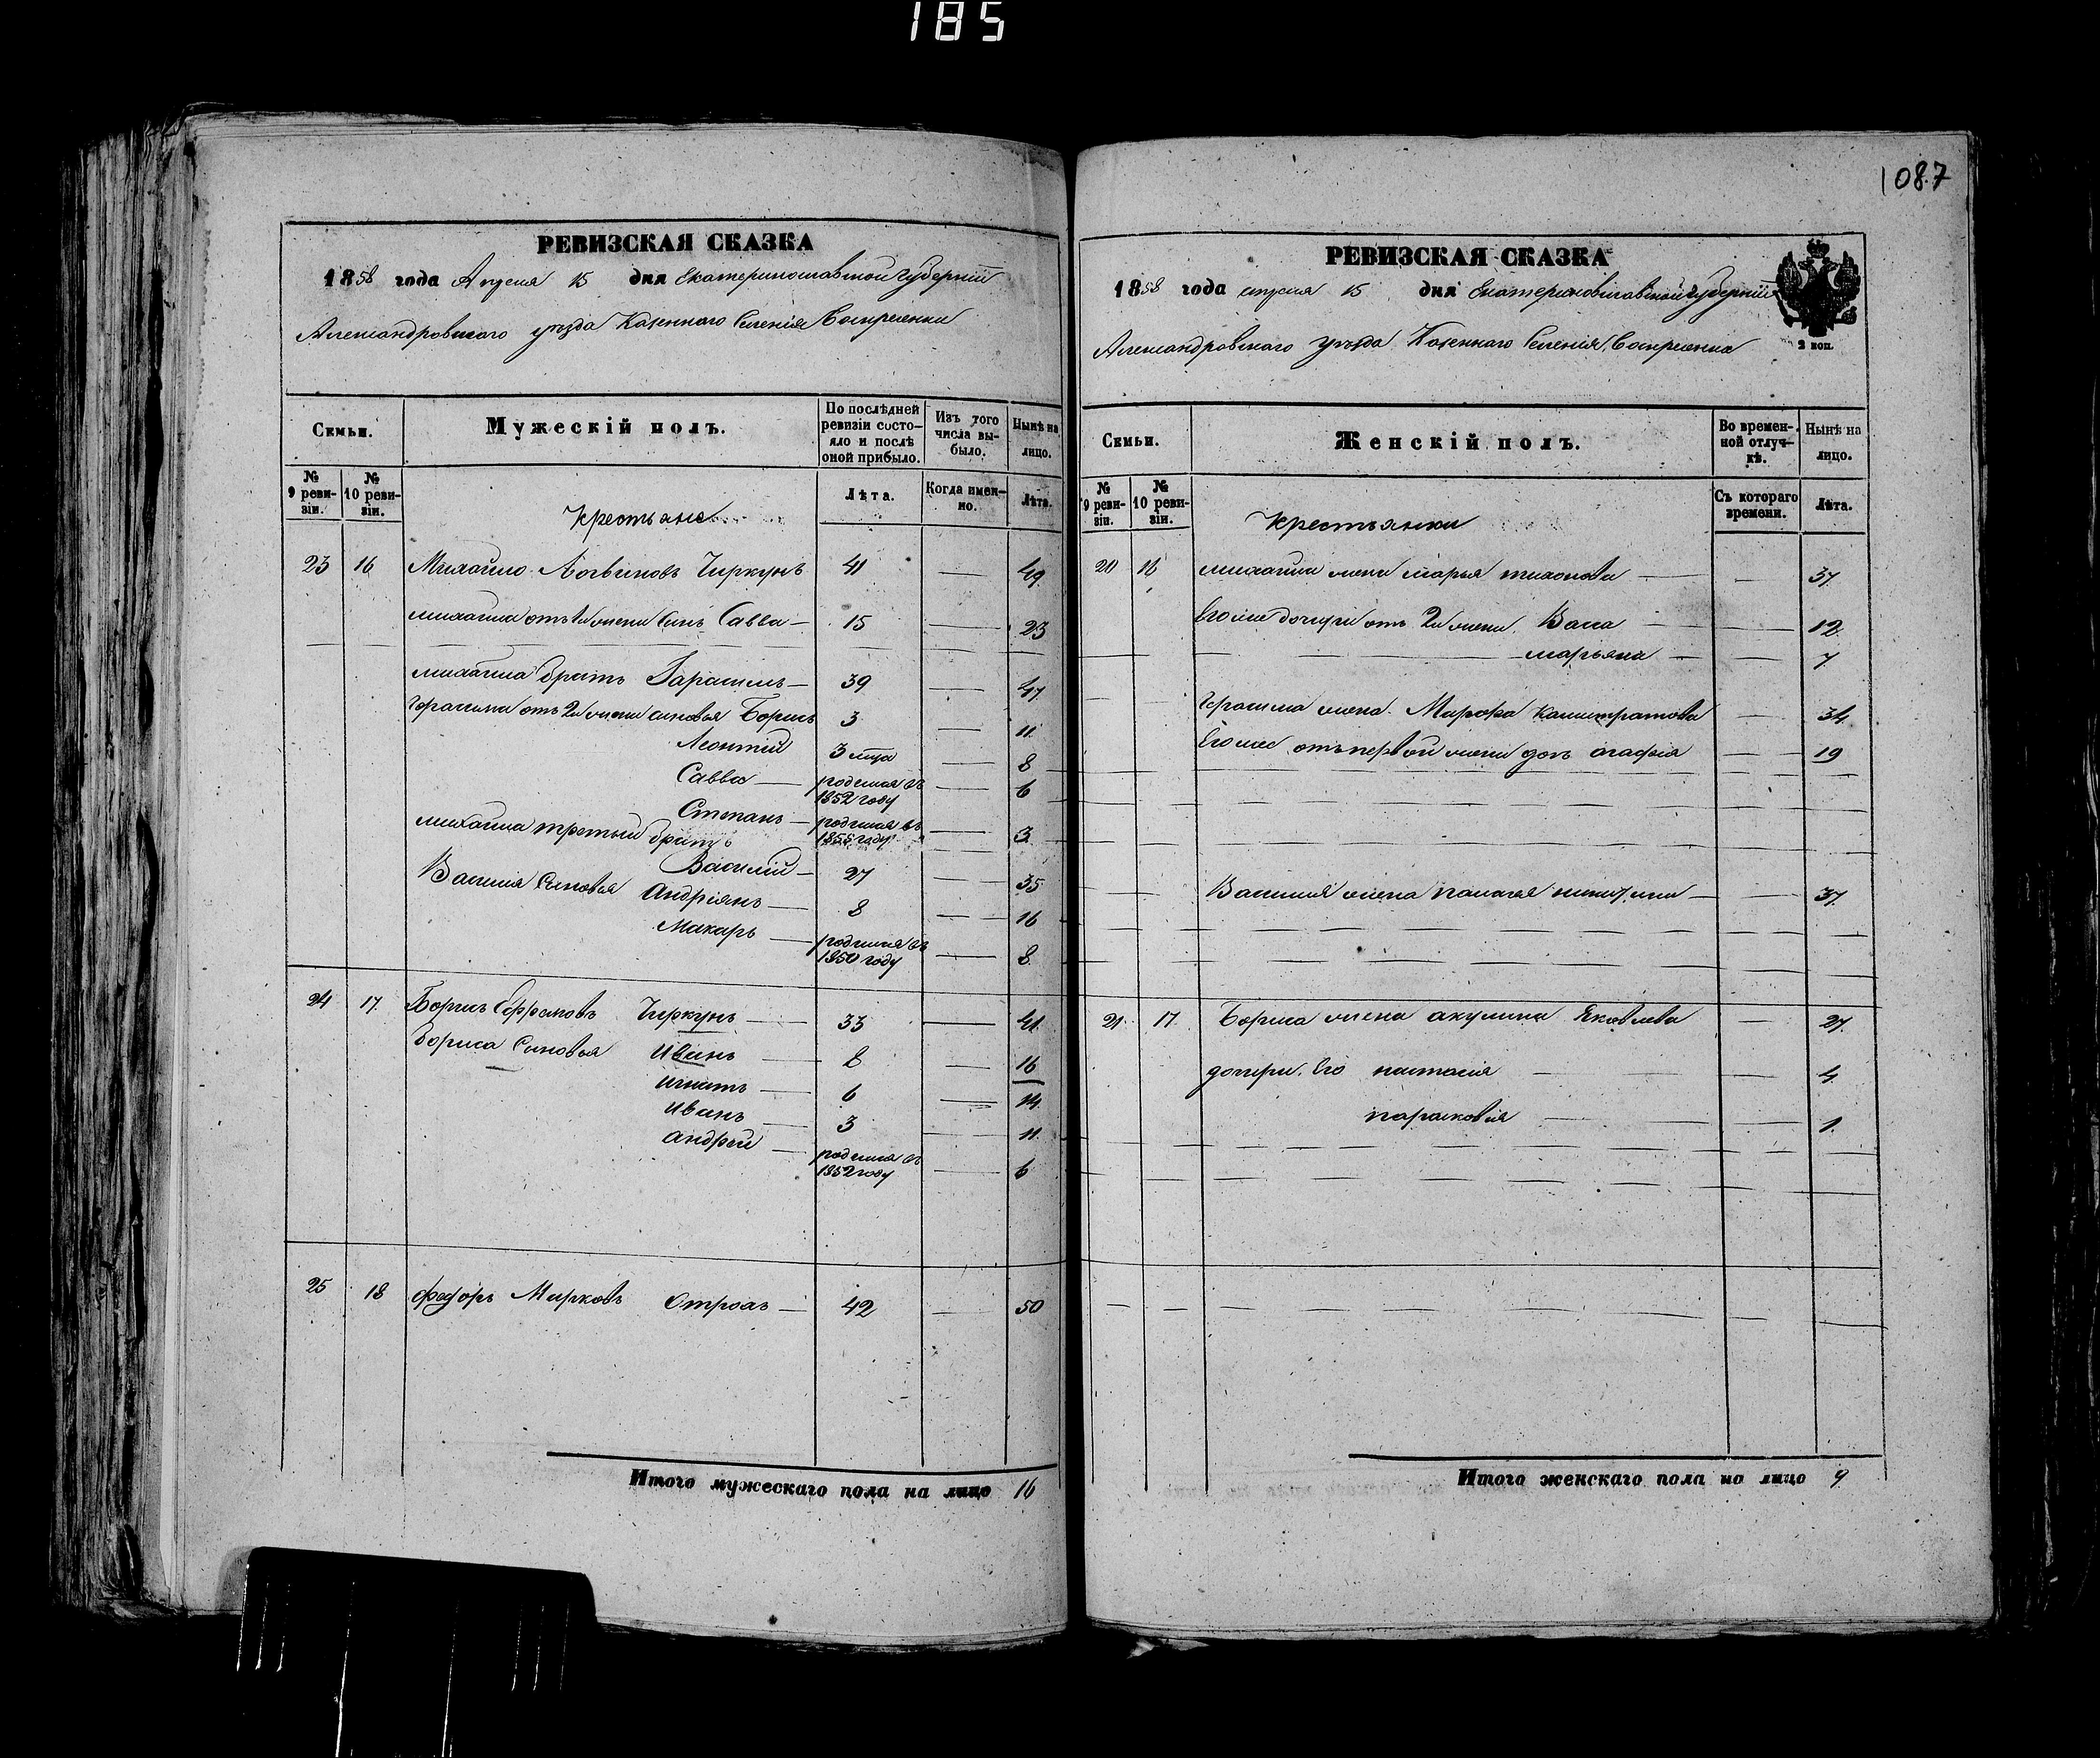 185
1087
РЕВИЗСКАЯ СКАЗКА
1858 года Апреля 15 дня Екатеринославской Губерніи
Александровского уезда Казенного Селенія Воскресенки
Семьи.
Мужескій полъ.
По послѣдней ревизіи состо-
яло и послѣ оной прибыло.
Изъ того числа вы-
было.
Нынѣ на лицо.
№ 9 реви-
зіи.
№ 10 реви-
зіи.
Крестьяне
Лѣта.
Когда имен-
но.
Лѣта.
23 16 Михайло Логвиновъ Чиркунъ 41 — 49
Михайла отъ 1й жены Сынъ Савва — 15 — 23
Михайла братъ Гарасимъ — 39 — 47
Герасима отъ 2й жены сыновья Борисъ 3 — 11
Леонтій 3 мца — 8
Савва — родился въ 1852 году — 6
Степанъ — родился въ 1855 году — 3
Михайла третьий братъ
Василій — 27 — 35
Василия Сыновья Андріянъ — 8 — 16
Макаръ — родился въ 1850 году — 8
24 17 Борисъ Ефремовъ Чиркунъ — 33 — 41
Бориса Сыновья Иванъ — 8 — 16
Игнатъ — 6 — 14
Иванъ — 3 — 11
Андрей — родился въ 1852 году — 6
25 18 Федоръ Марковъ — 42 — 50
Итого мужескаго пола на лицо 16
РЕВИЗСКАЯ СКАЗКА
1858 года апреля 15 дня Екатеринославской губерніи
Александровского уезда Казенного Селенія Воскресенки
2 коп.
Семьи.
Женскій полъ.
Во времен-
ной отлуч-
кѣ.
Нынѣ на лицо.
№ 9 реви-
зіи.
№ 10 реви-
зіи.
Крестьянки
Съ котораго времени.
Лѣта.
20 16 Михайла жена Марья Тихонова — — 37
Его же дочери отъ 2й жены Васса — — 12
Марьяна — — 7
Герасима жена Марфа Калистратова — 34
Его же отъ первой жены дочь Агафія — 19
Василия жена Палагея — — 37
21 17 Бориса жена Акулина Яковлева — 27
дочери Его Настасія — — 4
Парасковія — — 1
Итого женскаго пола на лицо 9